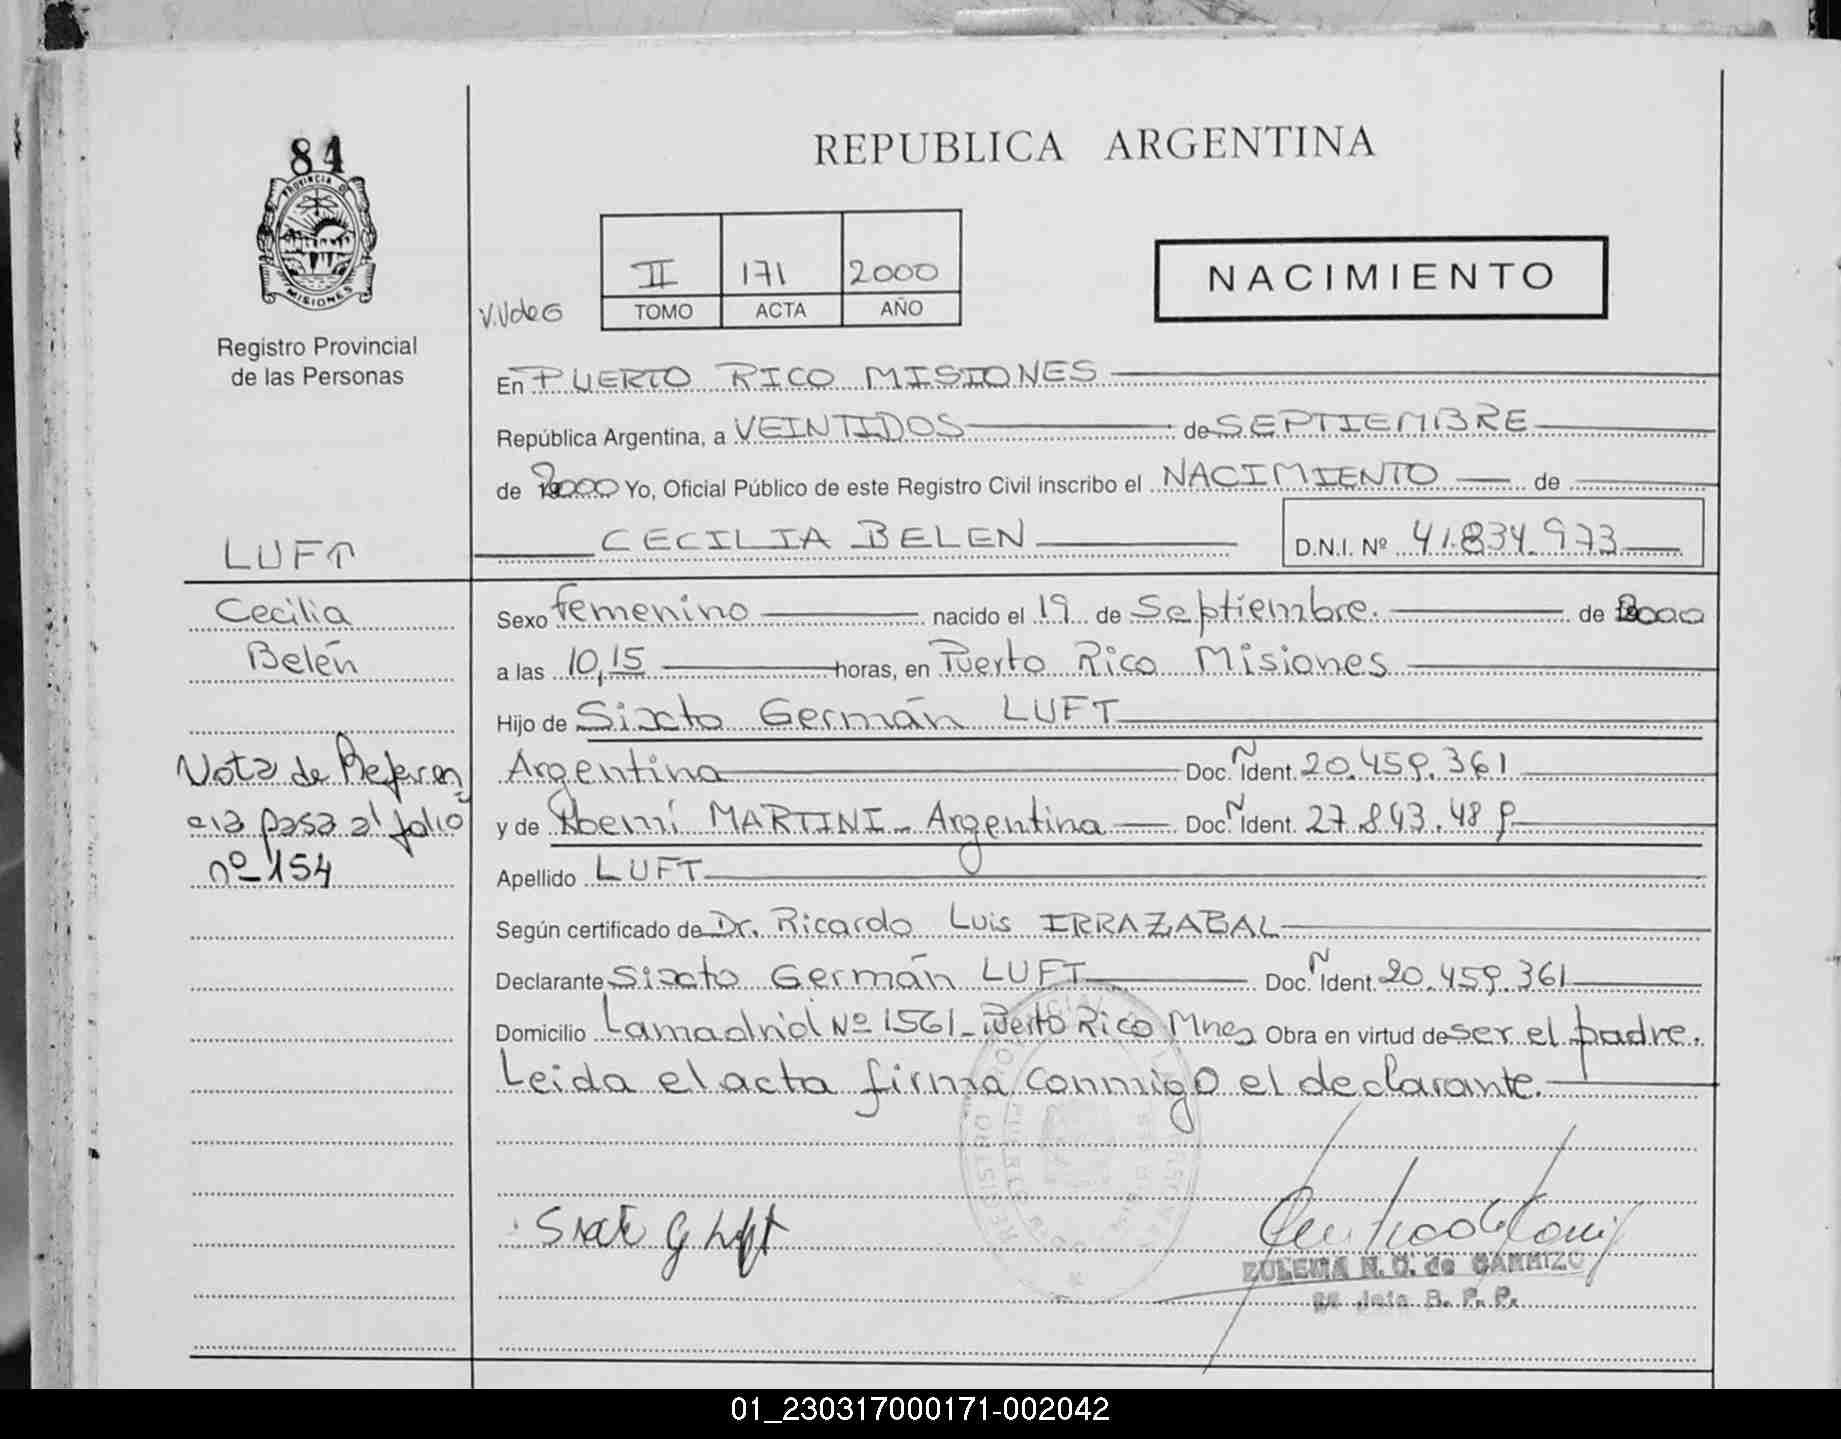 84
PROVINCIA DE
MISIONES
Registro Provincial
de las Personas
REPUBLICA ARGENTINA
II 171 2000
TOMO ACTA AÑO
NACIMIENTO
En PUERTO RICO MISIONES
República Argentina, a VEINTIDOS de SEPTIEMBRE
de 2000 Yo, Oficial Público de este Registro Civil inscribo el NACIMIENTO de
CECILIA BELEN D.N.I. Nº 41.834.973
LUFT
Cecilia
Belén
Nota de Referen
cia pasa al folio
nº 154
Sexo femenino nacido el 19 de Septiembre. de 2000
a las 10,15 horas, en Puerto Rico Misiones
Hijo de Sixto Germán LUFT
Argentina Doc. Ñ Ident. 20.459.361
y de Noemí MARTINI - Argentina Doc. Ñ Ident. 27.843.489
Apellido LUFT
Según certificado de Dr. Ricardo Luis IRRAZABAL
Declarante Sixto Germán LUFT Doc. Ñ Ident. 20.459.361
Domicilio Lamadrid Nº 1561 - Puerto Rico Mnes Obra en virtud de ser el padre.
Leida el acta firma conmigo el declarante.
Sixto G Luft
ZULEMA N. O. de
01_230317000171-002042